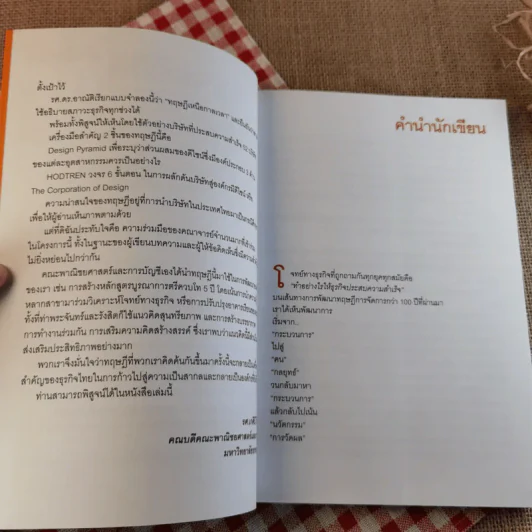 ตั้งเป้าไว้
รศ.ดร.อาณัติเรียกแบบจำลองนี้ว่า "ทฤษฎีเหนือกาลเวลา"
ใช้อธิบายสภาวะธุรกิจทุกช่วงได้
พร้อมทั้งพิสูจน์ให้เห็นโดยใช้ตัวอย่างบริษัทที่ประสบความสำเร็จ
เครื่องมือสำคัญ 2 ชิ้นของทฤษฎีนี้คือ
Design Pyramid เพื่อระบุว่าส่วนผสมของดีไซน์ซึ่งมีองค์ประกอบ 3 ด้าน
ของแต่ละอุตสาหกรรมควรเป็นอย่างไร
HODTREN วงจร 6 ขั้นตอน ในการผลักดันบริษัทสู่องค์กรดีไซน์ หรือ
The Corporation of Design
ความน่าสนใจของทฤษฎีอยู่ที่การนำบริษัทในประเทศไทยมาเป็น
เพื่อให้ผู้อ่านเห็นภาพตามด้วย
แต่ที่ดิฉันประทับใจคือ ความร่วมมือของคณาจารย์จำนวนมากที่เข้า
ในโครงการนี้ ทั้งในฐานะของผู้เขียนบทความและผู้ให้ข้อคิดเห็น
ไม่ยิ่งหย่อนไปกว่ากัน
คณะพาณิชยศาสตร์และการบัญชีเองได้นำทฤษฎีนี้มาใช้ในการพัฒนา
ของเรา เช่น การสร้างหลักสูตรบูรณาการตรีควบโท 5 ปี โดยเน้นการนำ
หลากสาขามาร่วมวิเคราะห์โจทย์ทางธุรกิจ หรือการปรับปรุงอาคารเรียน
ทั้งที่ท่าพระจันทร์และรังสิตก็ใช้แนวคิดสุนทรียภาพ และการสร้างบรรยากาศ
การทำงานร่วมกัน การเสริมความคิดสร้างสรรค์ ซึ่งเราพบว่าแนวคิดนี้
ส่งเสริมประสิทธิภาพอย่างมาก
พวกเราจึงมั่นใจว่าทฤษฎีที่พวกเราคิดค้นกันขึ้นมาครั้งนี้จะกลายเป็น
สำคัญของธุรกิจไทยในการก้าวไปสู่ความเป็นสากลและกลายเป็นองค์กร
ท่านสามารถพิสูจน์ได้ในหนังสือเล่มนี้
คณบดีคณะพาณิชยศาสตร์และ
คำนำนักเขียน
โจทย์ทางธุรกิจที่ถูกถามกันทุกยุคทุกสมัยคือ
"ทำอย่างไรให้ธุรกิจประสบความสำเร็จ"
บนเส้นทางการพัฒนาทฤษฎีการจัดการกว่า 100 ปีที่ผ่านมา
เราได้เห็นพัฒนาการ
เริ่มจาก...
"กระบวนการ"
ไปสู่
"คน"
"กลยุทธ์"
วนกลับมาหา
"กระบวนการ"
แล้วกลับไปเน้น
"นวัตกรรม"
"การวัดผล"